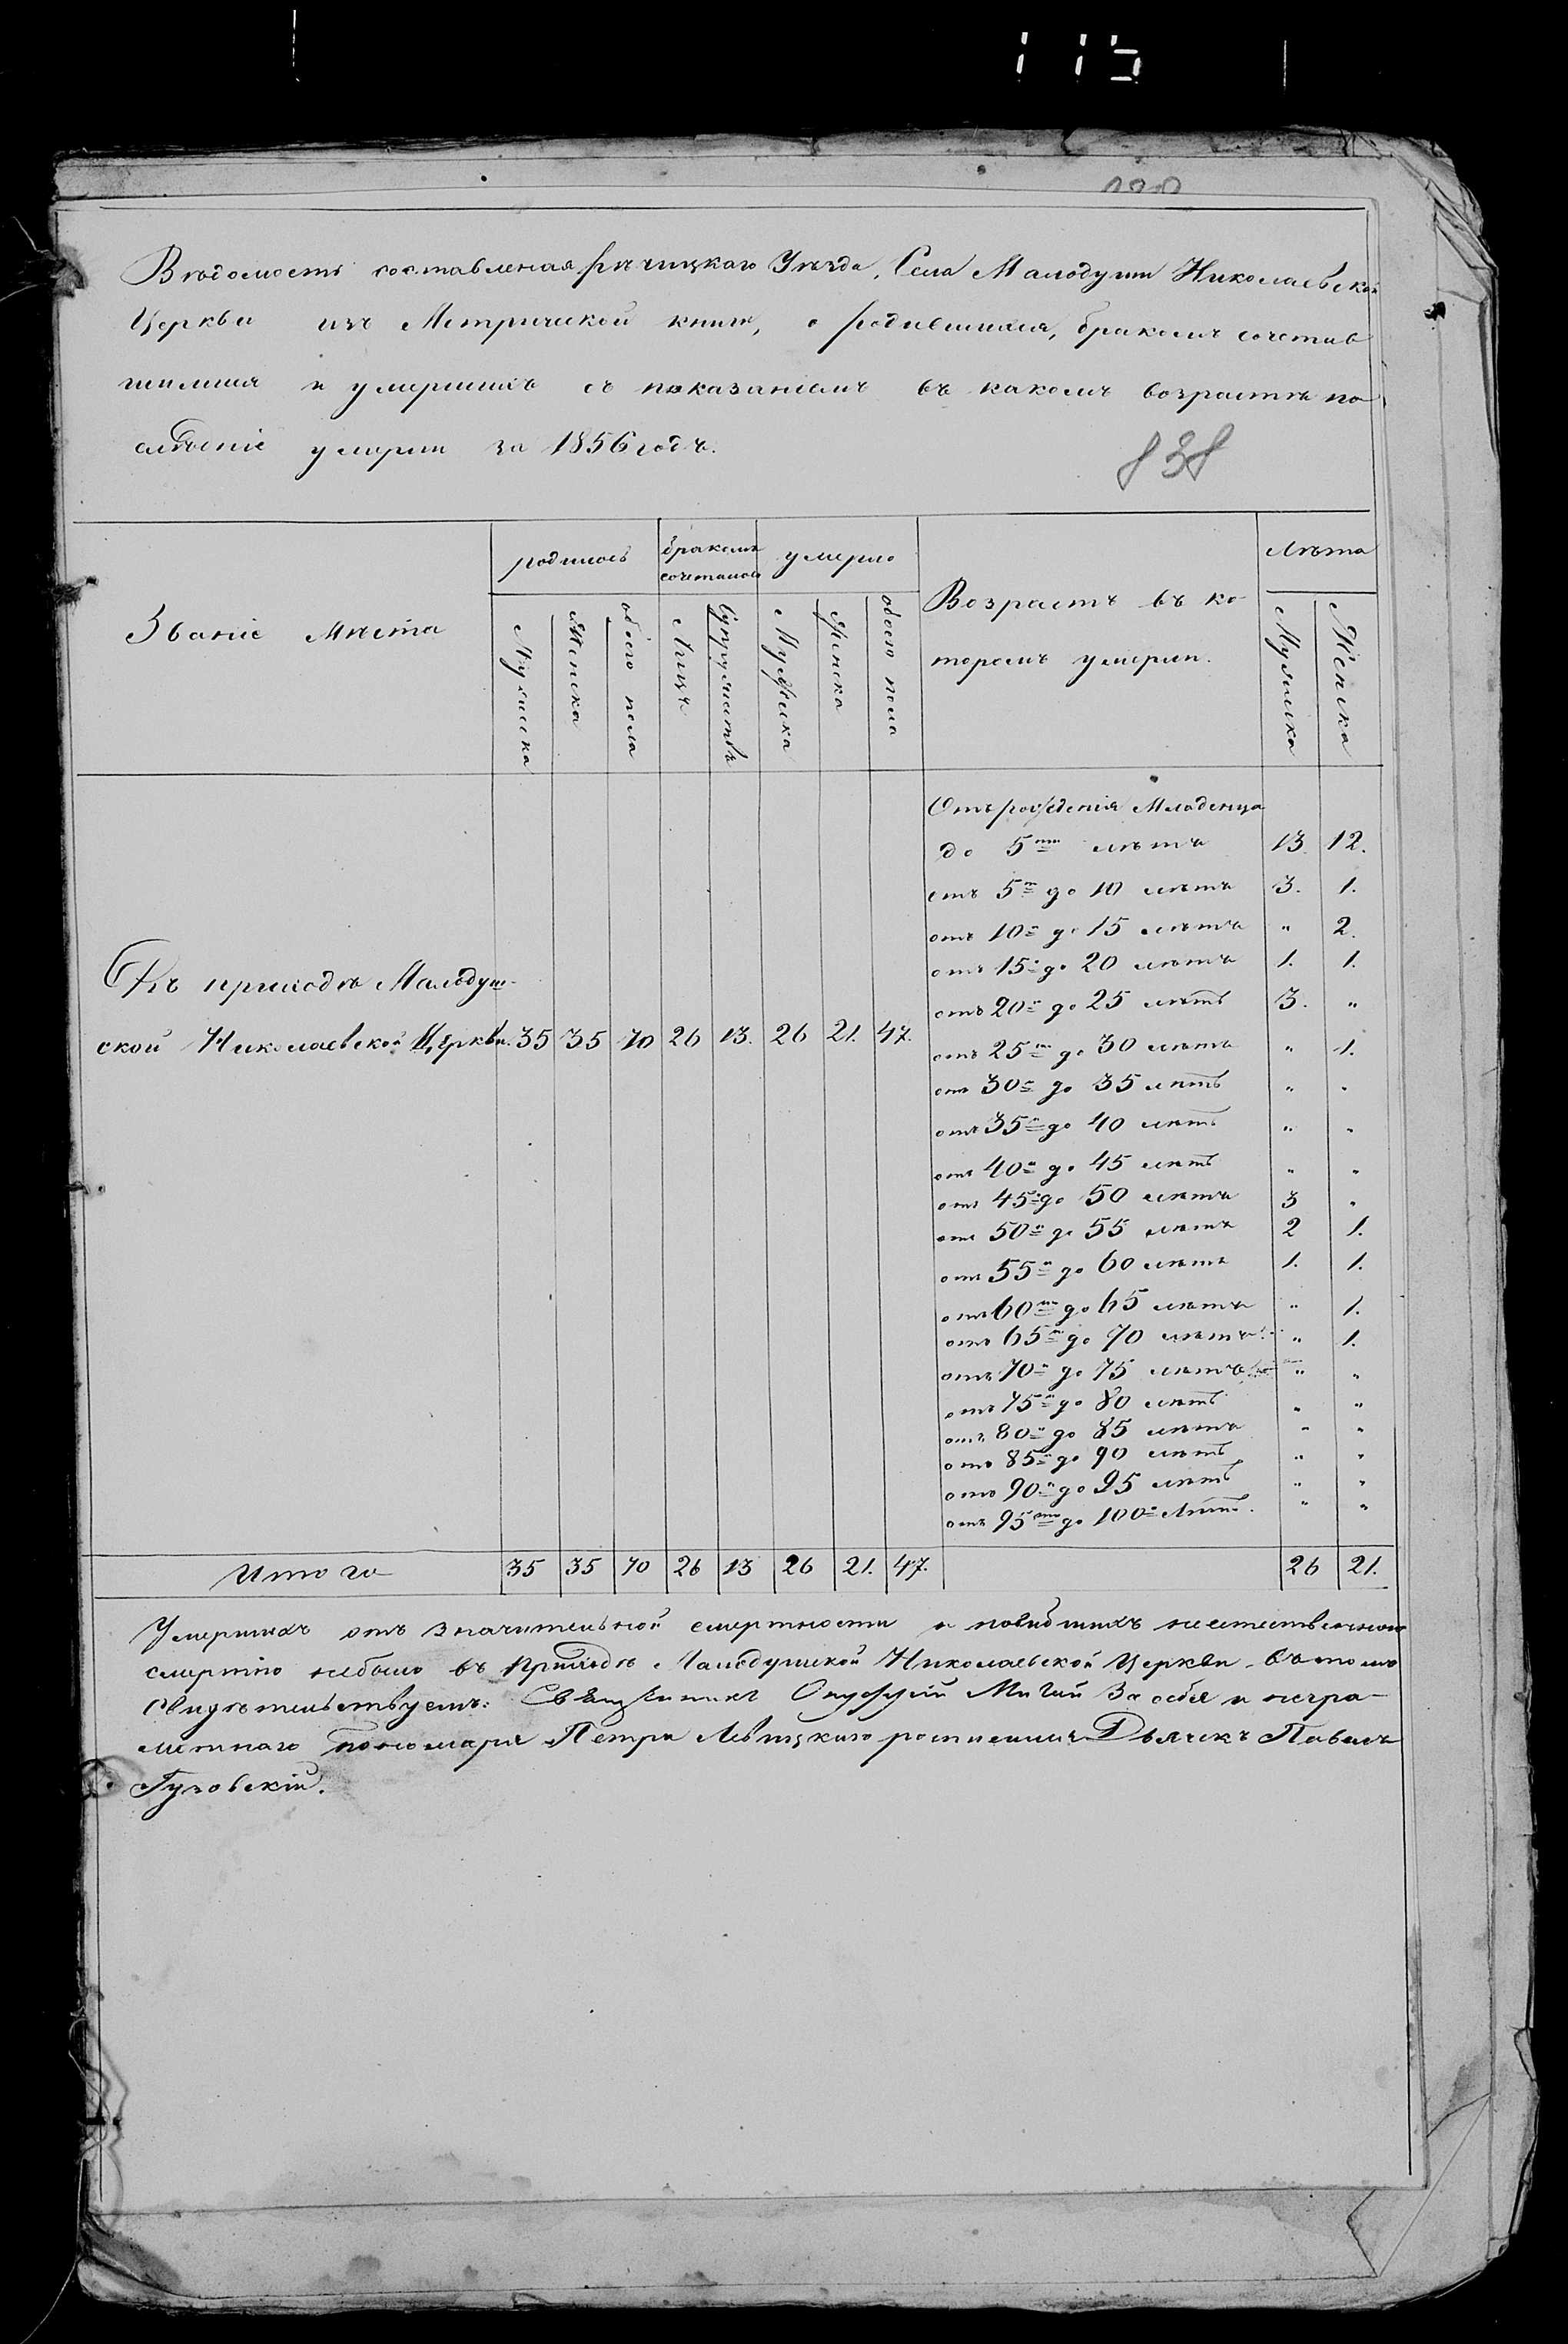 115
Вѣдомость составленая Рѣчицкаго Уѣзда, Села Малодуши Николаевской
Церкви изъ Метрической книги, о родившихся, бракомъ сочетав
шимися и умершихъ съ показаніемъ въ какомъ возрастѣ по
слѣдніе умерли за 1856 годъ.
838
Званіе мѣста
родилось
бракомъ сочеталось
умерло
Возрастъ въ ко
торомъ умерли.
лѣта
Мужеска
Женска
обоего пола
Лицъ
Супружествъ
Мужеска
Женска
обоего пола
Мужеска
Женска
Отъ рожденія Младенца
до 5ти лѣтъ 13. 12.
отъ 5ти до 10 лѣтъ 3. 1.
отъ 10и до 15 лѣтъ " 2.
отъ 15и до 20 лѣтъ 1. 1.
отъ 20и до 25 лѣтъ 3. "
Въ приходѣ Малодуш-
ской Николаевской Церкви. 35 35 70 26 13. 26 21. 47.
отъ 25ти до 30 лѣтъ " 1.
отъ 30и до 35 лѣтъ " "
отъ 35и до 40 лѣтъ " "
отъ 40и до 45 лѣтъ " "
отъ 45и до 50 лѣтъ 3 "
отъ 50и до 55 лѣтъ 2 1.
отъ 55и до 60 лѣтъ 1. 1.
отъ 60ти до 65 лѣтъ " 1.
отъ 65и до 70 лѣтъ " 1.
отъ 70и до 75 лѣтъ " "
отъ 75и до 80 лѣтъ " "
отъ 80и до 85 лѣтъ " "
отъ 85и до 90 лѣтъ " "
отъ 90и до 95 лѣтъ " "
отъ 95ти до 100и Лѣтъ. " "
Итого 35 35 70 26 13 26 21. 47. 26 21.
Умершихъ отъ значительной смертности и погибшихъ неестественною
смертію небыло въ Приходѣ Малодушской Николаевской Церкви. Въ томъ
Свидѣтельствуемъ: Священникъ Онуфрій За себя и негра-
мотнаго пономаря Петра Левицкаго росписался Дьячекъ Павелъ
Гузовскій.